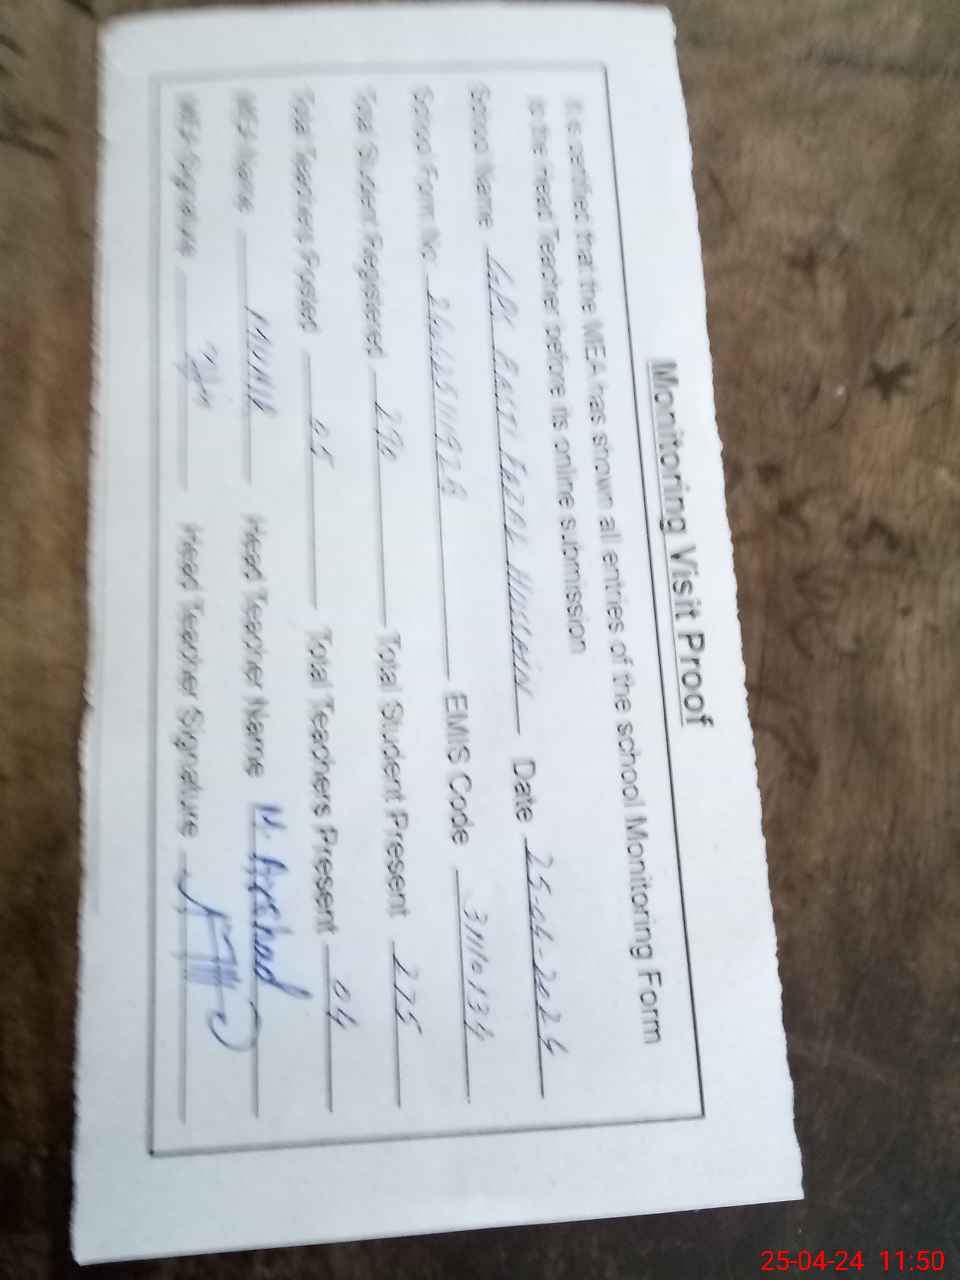 Monitoring Visit Proof
It is certified that the MEA has shown all entries of the school Monitoring Form
to the Head Teacher before its online submission
School Name GPS BASTI FAZAL HUSSAIN Date 25-04-2024
School Form No EMIS Code 31110134
Total Student Registered 290 Total Student Present 275
Total Teachers Posted 05 Total Teachers Present 04
MEA Name MUNIR Head Teacher Name M. Arshad
MEA Signature Head Teacher Signature
25-04-24 11:50